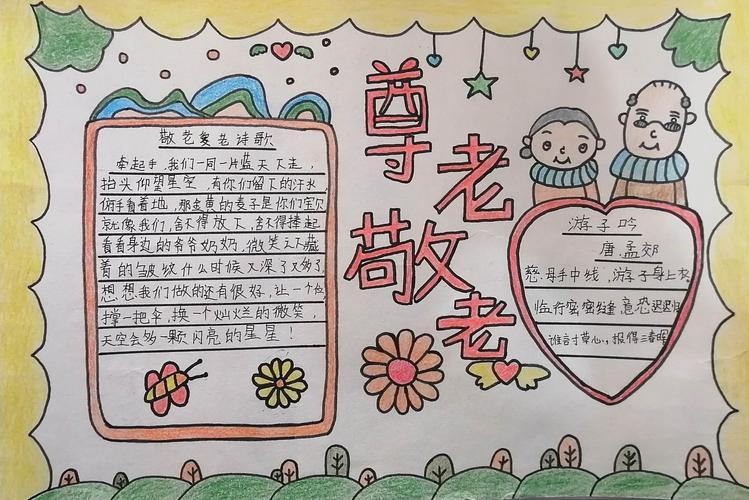 敬老爱老诗歌
牵起手，我们一同一片蓝天下走，
抬头仰望星空，有你们留下的汗水，
俯手看着地，那金黄的麦子是你们宝贝
就像我们，舍不得放下，舍不得捧起
看看身边的爷爷奶奶，微笑之下藏
着的皱纹什么时候又深了又多了
想想我们做的还有很好，让一个位
撑一把伞，换一个灿烂的微笑，
天空会多一颗闪亮的星星！
尊
老
敬
老
游子吟
唐孟郊
慈母手中线，游子身上衣
临行密密缝，意恐迟迟归
谁言寸草心，报得三春晖